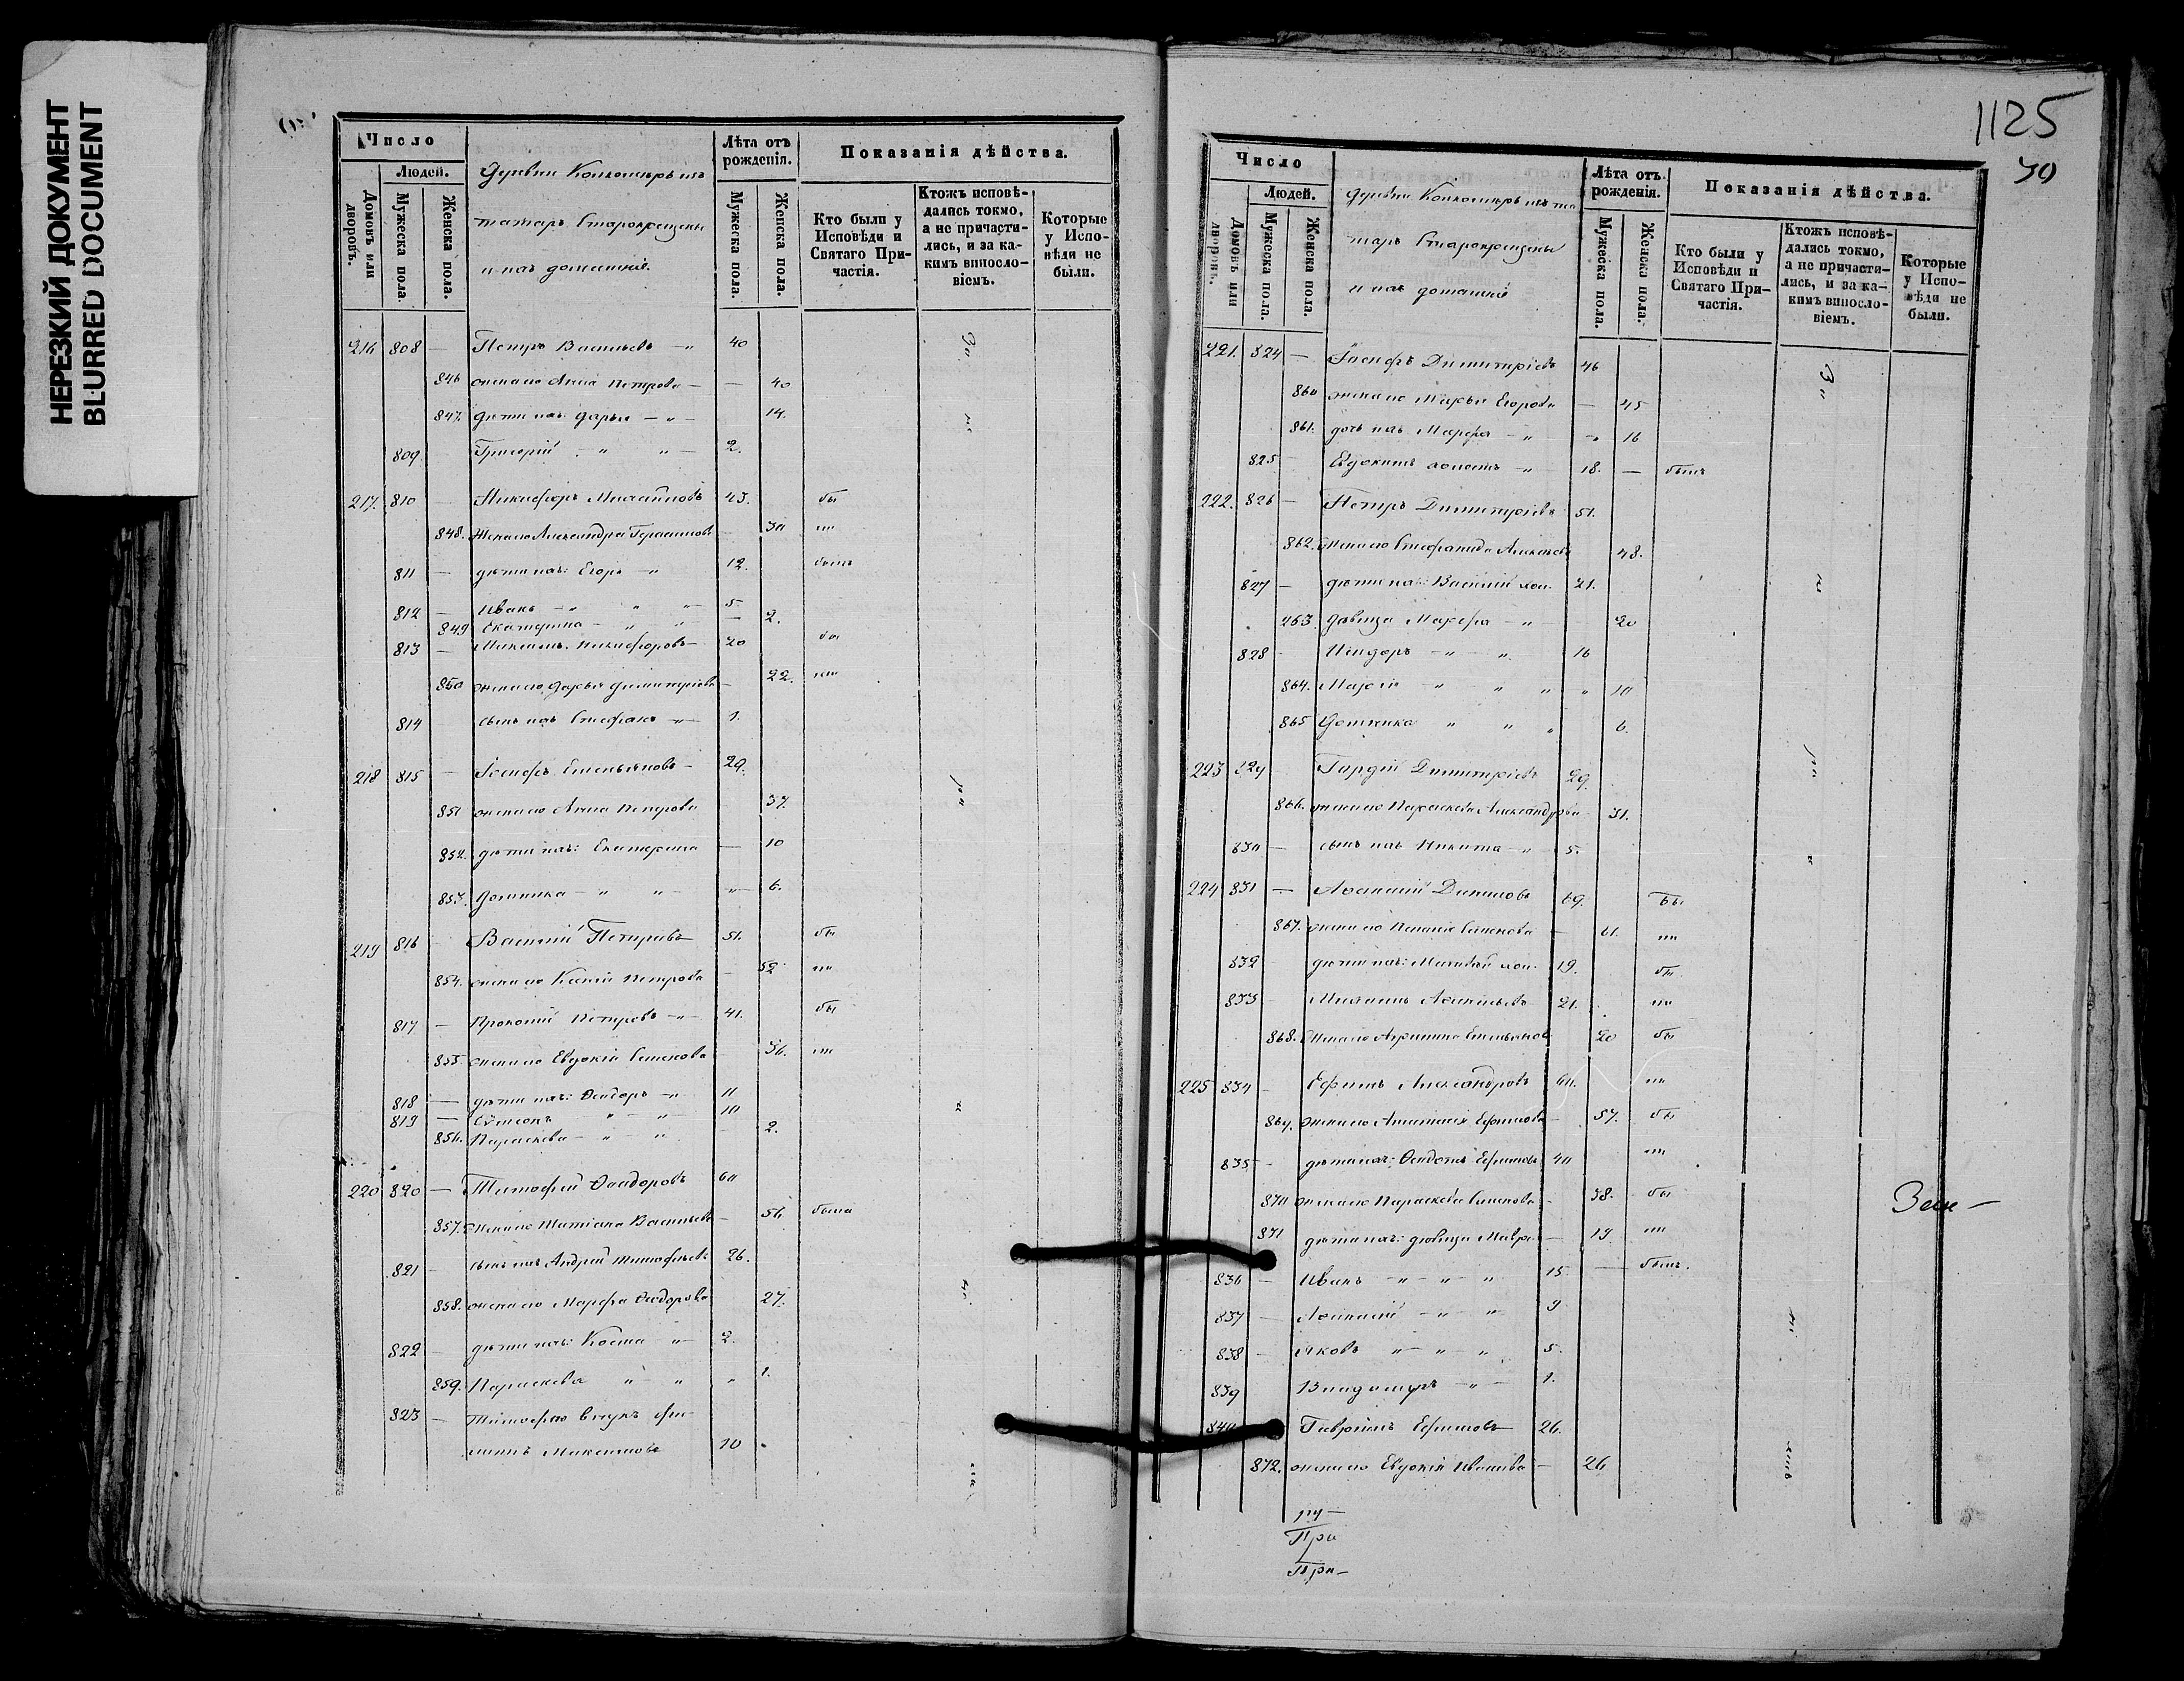 НЕРЕЗКИЙ ДОКУМЕНТ
BLURRED DOCUMENT
Число
Людей.
Домовъ или дворовъ.
Мужеска пола.
Женска пола.
Деревни
татаръ Старокрещены
и ихъ домашніе.
Лѣта отъ рожденія.
Мужеска пола.
Женска пола.
Показанія дѣйства.
Кто были у Исповѣди и Святаго Причастія.
Ктожъ исповѣдались токмо, а не причастились, и за какимъ винословіемъ.
Которые у Исповѣди не были.
216 808 — Петръ Васильевъ — 40 За
846 жена его Анна Петрова — 40
847. дѣти ихъ: Дарья — 14.
809 Григорій — " " — 2.
217. 810 Никифоръ Михайловъ 43. бы
848. Жена его Александра Герасимова 30 ли
811 — дѣти ихъ: Егоръ — " 12. былъ
812 — Иванъ — " " " 5
849 Екатерина — " " — 2.
813 — Максимъ Никифоровъ — 20 бы
850 жена его Дарья Димитріева — 22. ли
814 сынъ ихъ Стефанъ — " — 1.
218 815 — Іосифъ Емельяновъ — 29.
851 жена его Анна Петрова 37.
852. дѣти ихъ: Екатерина — 10
853. Домника — " " — " 6.
219 816 Василій Петровъ 51. бы
854. жена его Ксенія Петрова — 52 ли
817 — Прокопій Петровъ — " — 41. бы
855. жена его Евдокія Семенова 36. ли
818 — дѣти ихъ: Ѳеодоръ — " 11
819 — Сѵмеонъ " " 10
856. Параскева — " " 2.
220 820 — Тимофей Ѳеодоровъ 60
857. Жена его Татіана Васильева — 56 была
821 — сынъ ихъ Андрей Тимофѣевъ 26.
858. жена его Марфа Ѳеодорова 27.
822 — дѣти ихъ: Косма — " 2.
859. Параскева " — " " 1.
823 — Тимофею внукъ Фи-
липъ Максимовъ 10
1125
30
Число
Людей.
Домовъ или дворовъ.
Мужеска пола.
Женска пола.
Деревни
таръ Старокрещены
и ихъ домашніе
Лѣта отъ рожденія.
Мужеска пола.
Женска пола.
Показанія дѣйства.
Кто были у Исповѣди и Святаго Причастія.
Ктожъ исповѣдались токмо, а не причастились, и за какимъ винословіемъ.
Которые у Исповѣди не были.
221. 824 — Іосифъ Димитріевъ 46 За
860 жена его Марья Егорова — 45
861. дочь ихъ Марфа — " — 16
825 — Евдокимъ холостъ — " 18. — былъ
222. 826 — Петръ Димитріевъ 51.
862. Жена его Стефанида Алексѣева 48.
827 — дѣти ихъ: Василій хол. 21.
263. дѣвица Марфа — " — 20
828 — Исидоръ — " — " 16
864. Марія " " " " 10
865 Домника " " " 6.
223 829 Гордій Димитріевъ 29.
866. жена его Параскева Александрова 31.
830 — сынъ ихъ Никита — " 5.
224 831 — Аѳанасій Даниловъ 69. бы
867. жена его Семенова — 61. ли
832 — дѣти ихъ: Матвѣй хол. 19. бы
833 — Михаилъ Аѳанасьевъ 21. ли
868. Жена его Агрипина Емельянова 20 бы
225 834 — Ефимъ Александровъ 60. ли
869. Жена его Анастасія Ефимова — 57. бы
835 — дѣти ихъ: Ѳеодотъ Ефимовъ 40 ли
870 жена его Параскева Семенова — 38. бы
871 дѣти ихъ: дѣвица Мавра — 19. ли
836 — Иванъ — " — " — " 15 — былъ.
837 — Аѳанасій — " — " 9
838 — Яковъ " — " — " 5.
839 Владиміръ — " — 1.
840 Гавріилъ Ефимовъ 26.
872. жена его Евдокія Иванова — 26
Зем —
ру —
При
При —